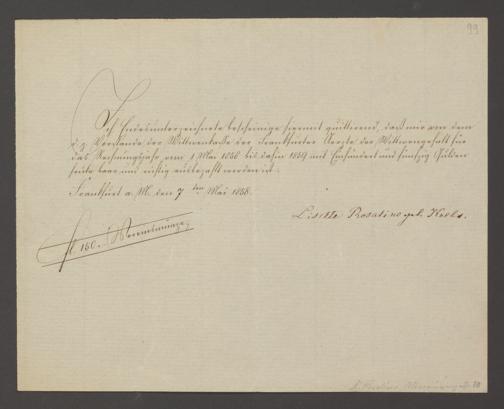 99
Ich Endesunterzeichnete bescheinige hiermit quittirend, daß mir von dem
d. z. Vorstande der Wittwenkasse der Frankfurter Aerzte der Wittwengehalt für
das Rechnungsjahr vom 1 Mai 1858 bis dahin 1859 mit Einhundert und fünfzig Gulden
heute baar und richtig ausbezahlt worden ist.
Frankfurt a. M. den 7ten Mai 1858.
Lisette Rosalino geb. Kerbs.
fl. 150.